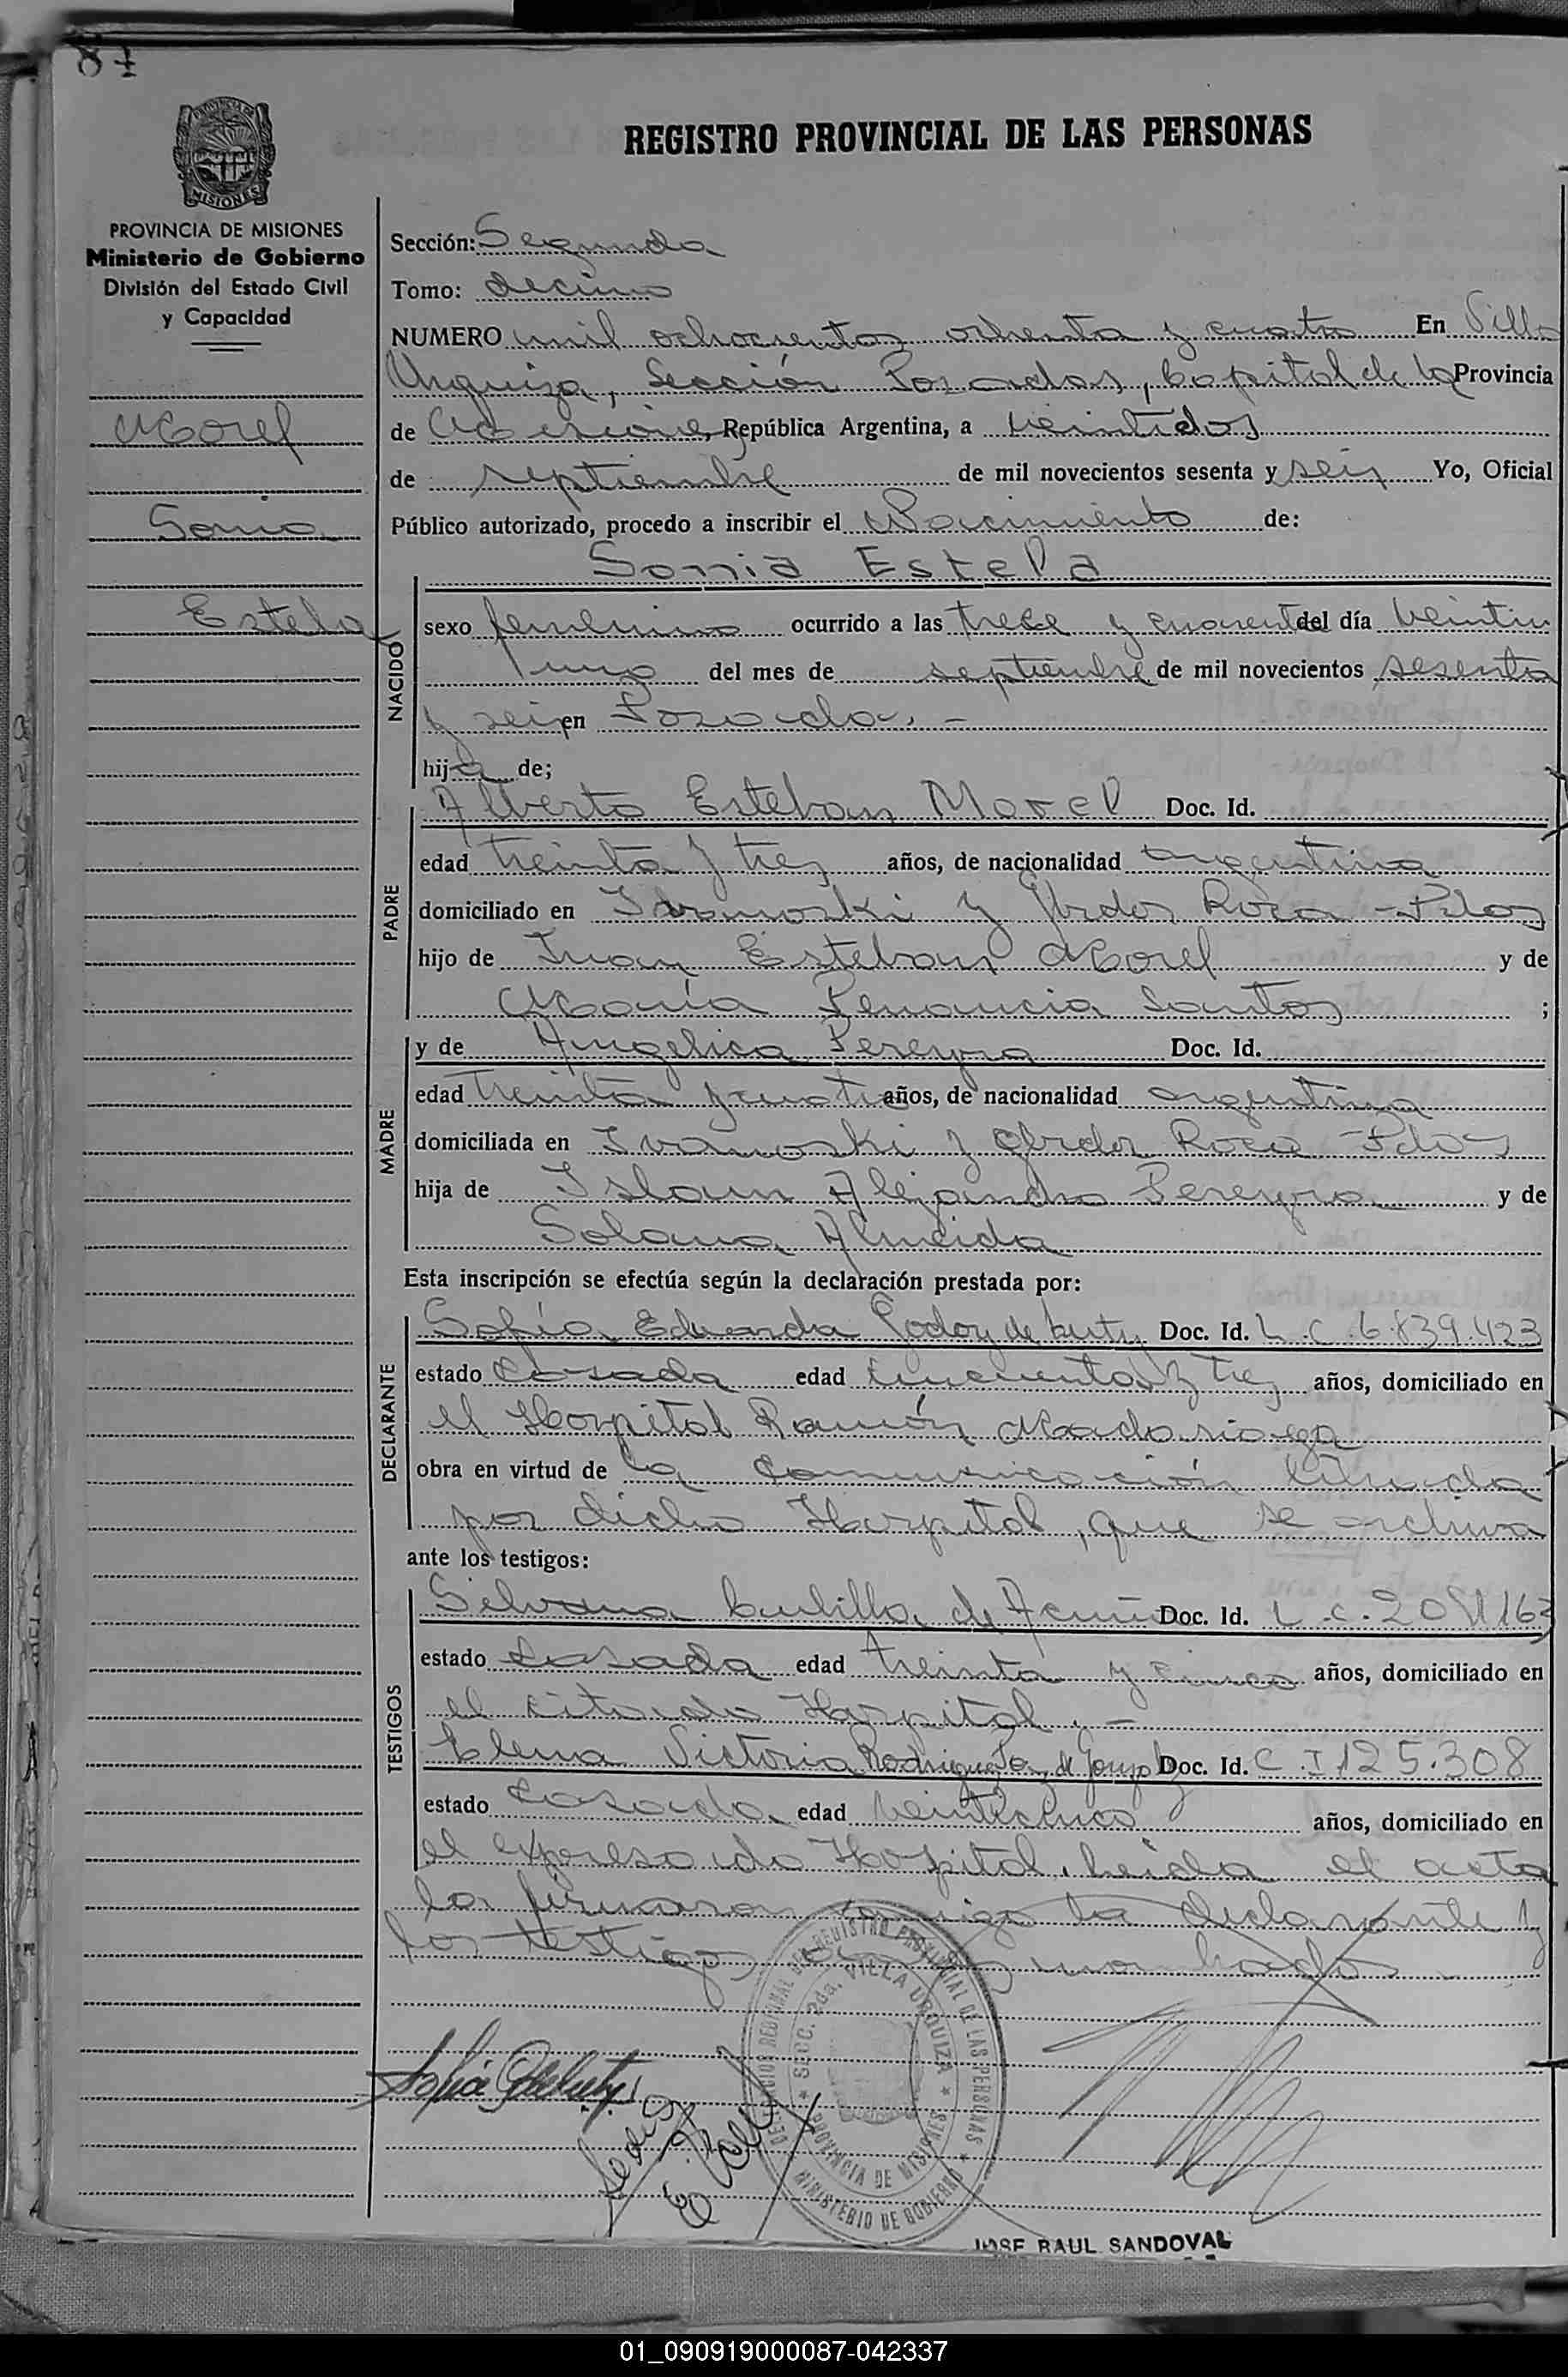 87
REGISTRO PROVINCIAL DE LAS PERSONAS
MISIONES
PROVINCIA DE MISIONES
Ministerio de Gobierno
División del Estado Civil
y Capacidad
Morel
Sonia
Estela
Sección: Segunda
Tomo: decimo
NUMERO mil ochocientos ochenta y cuatro En Villa
Urquiza, Sección Posadas, Capital de la Provincia
de Misiones, República Argentina, a veintidos
de septiembre de mil novecientos sesenta y seis Yo, Oficial
Público autorizado, procedo a inscribir el Nacimiento de:
Sonia Estela
NACIDO
sexo femenino ocurrido a las trece y cuarenta del día veintiu
uno del mes de septiembre de mil novecientos sesenta
y seis en Posadas. -
hija de;
PADRE
Alberto Esteban Morel Doc. Id.
edad treinta y tres años, de nacionalidad argentina
domiciliado en y Roca - Pdas
hijo de Juan Esteban Morel y de
María Santos ;
MADRE
y de Angelica Pereyra Doc. Id.
edad treinta y cuatro años, de nacionalidad argentina
domiciliada en Ivanoski y Roca - Pdas
hija de Alejandro Pereyra y de
Solana Almeida
Esta inscripción se efectúa según la declaración prestada por:
DECLARANTE
Sofía Eduarda Godoy de Doc. Id. L.C. 6.839.423
estado Casada edad cincuenta y tres años, domiciliado en
el Hospital Ramón Madariaga
obra en virtud de la comunicación librada
por dicho Hospital, que se archiva
ante los testigos:
TESTIGOS
Silvana de Acuña Doc. Id. L.C.
estado Casada edad treinta y cinco años, domiciliado en
el citado Hospital. -
Elena Victoria de Doc. Id. C.I 125.308
estado Casada edad veinticinco años, domiciliado en
el expresado Hospital. Leida el acta
la firmaron conmigo la declarante y
los testigos nombrados -
DELEGACION REGIONAL DEL REGISTRO PROVINCIAL DE LAS PERSONAS
SECC. 2da. VILLA URQUIZA
PROVINCIA DE MISIONES
MINISTERIO DE GOBIERNO
JOSE RAUL SANDOVAL
01_090919000087-042337